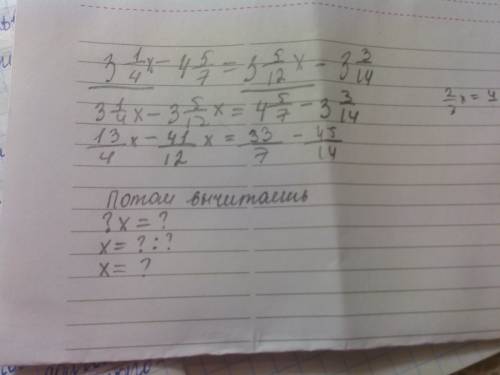 3 1/4 x - 4 5/7 = 3 5/12 x - 3 3/14
3 1/4 x - 3 5/12 x = 4 5/7 - 3 3/14
13/4 x - 41/12 x = 33/7 - 45/14
Потом вычитаешь
? x = ?
x = ? : ?
x = ?